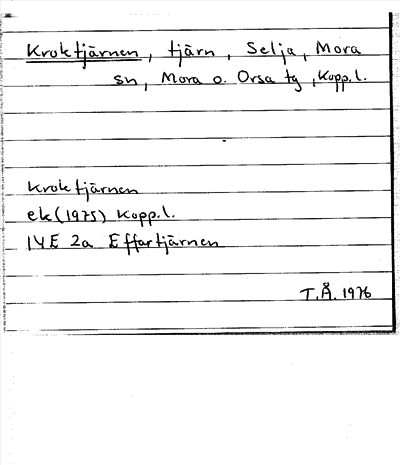 Kroktjärnen, tjärn, Selja, Mora
sn, Mora o. Orsa tg, Kopp.l.
Kroktjärnen
ek (1975) Kopp.l.
14E 2a Effartjärnen
T.Å. 1976